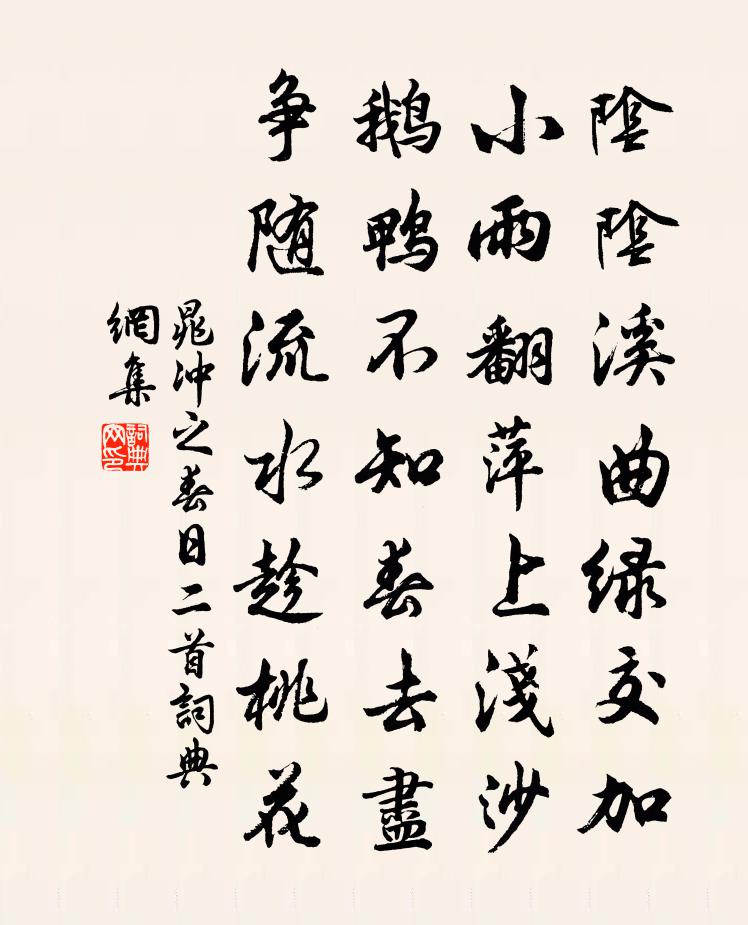 陰陰溪曲緑交加
小雨翻萍上淺沙
鵝鴨不知春去盡
争随流水趁桃花
晁沖之春日二首詞典
網集
詞典
网印